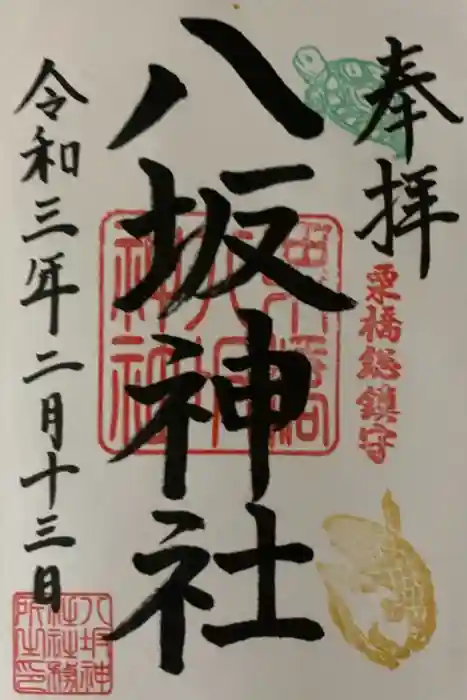 奉拝
栗橋総鎮守
八坂神社
栗橋八坂神社
令和三年二月十三日
八坂神社社務所之印